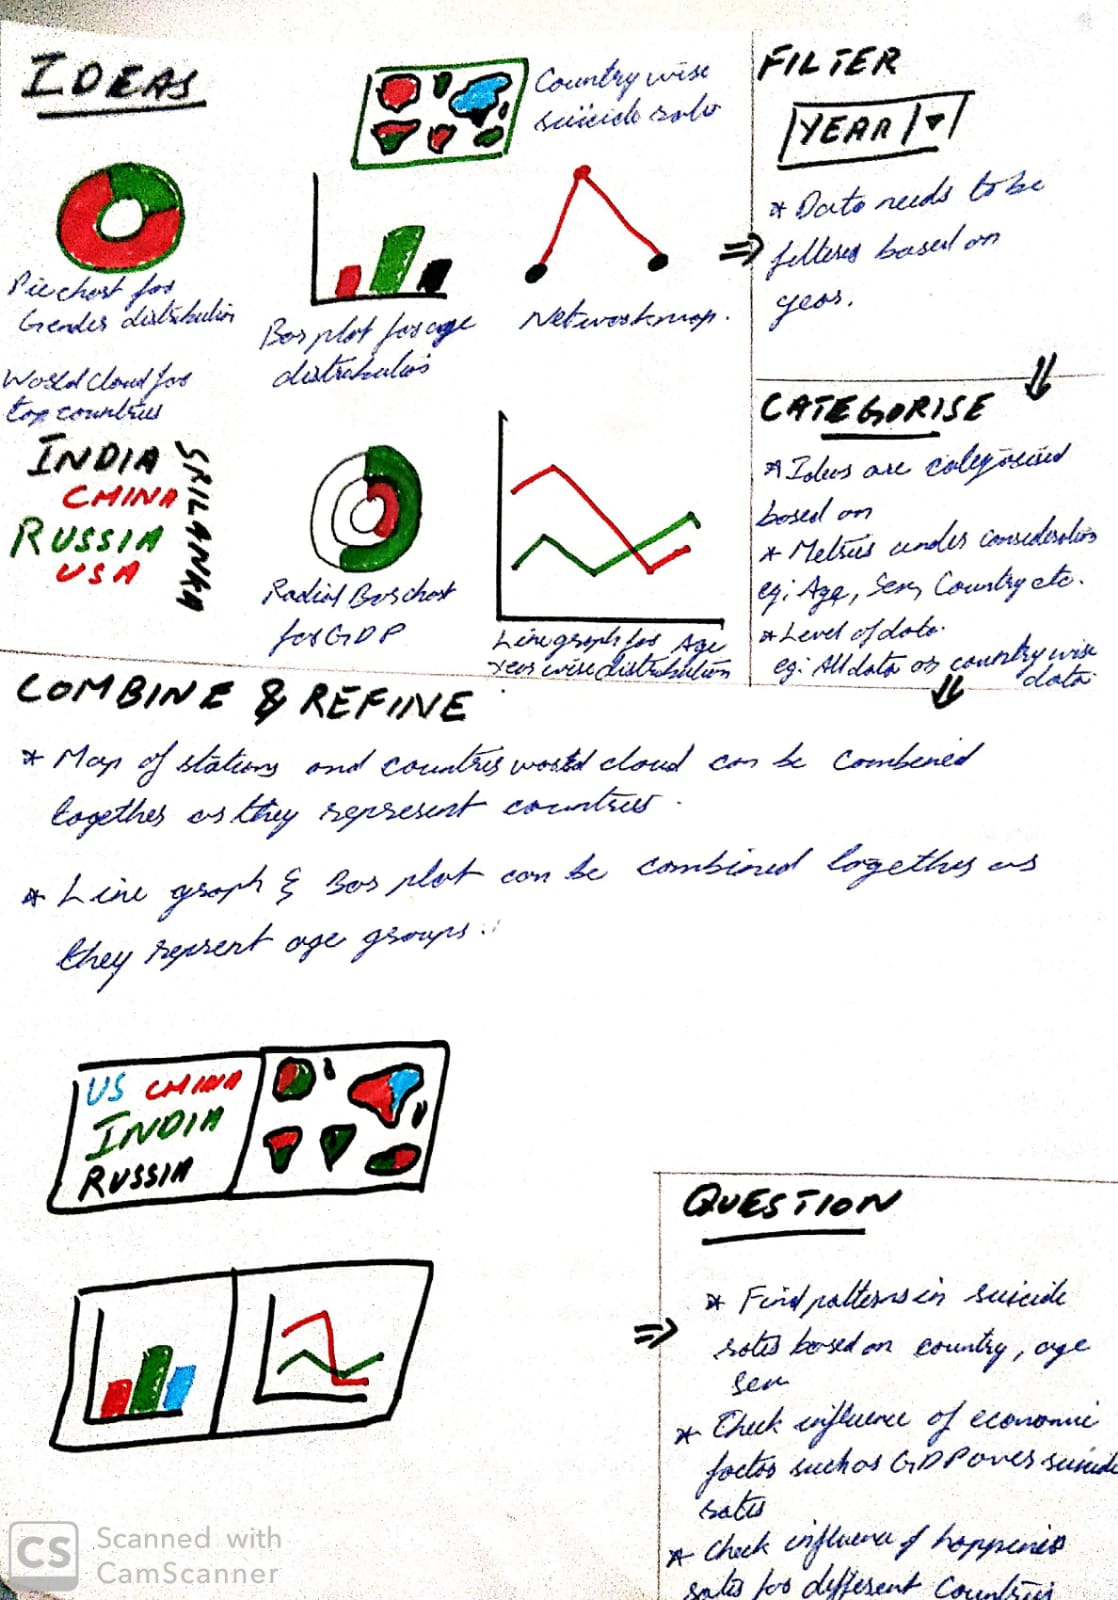 IDEAS
Country wise
suicide rate
Pie chart for
Gender distribution
Bar plot for age
distribution
Network map.
World Cloud for
top countries
INDIA
CHINA
RUSSIA
USA
SRILANKA
Radial Bar chart
for GDP
Line graph for Age
year wise distribution
FILTER
YEAR
* Data needs to be
filteres based on
year.
CATEGORISE
* Ideas are categorised
based on
* Metrics under consideration
eg: Age, Sex, Country etc.
* Level of data.
eg: All data or country wise
data
COMBINE & REFINE
* Map of stations and countries world cloud can be combined
together as they represent countries.
* Line graph & Bar plot can be combined together as
they represent age groups.
US CHINA
INDIA
RUSSIA
QUESTION
* Find patterns in suicide
rates based on country, age
sex
* Check influence of economic
factor such as GDP over suicide
rates
* Check influence of happiness
rates for different Countries
CS Scanned with
CamScanner